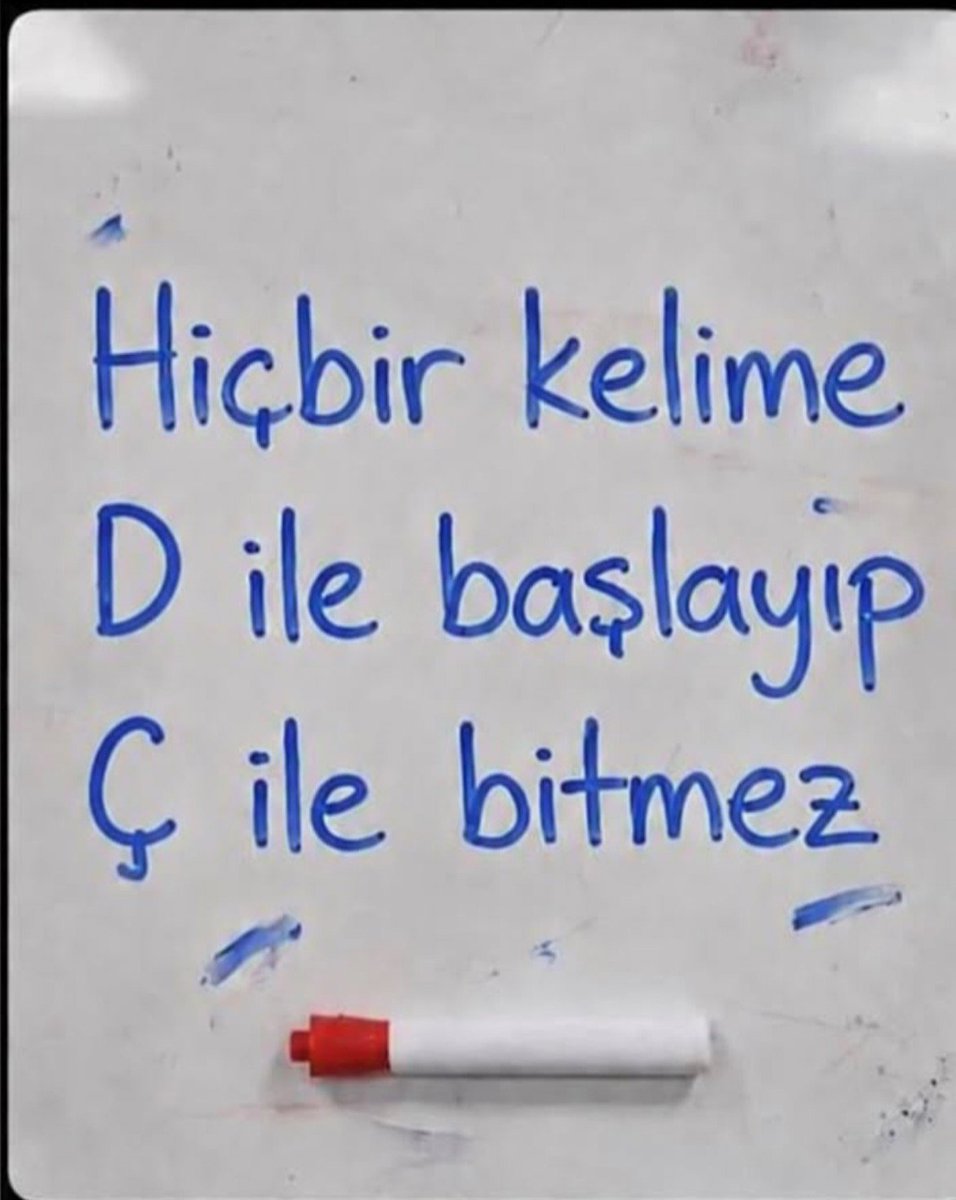 Hiçbir kelime
D ile başlayıp
Ç ile bitmez